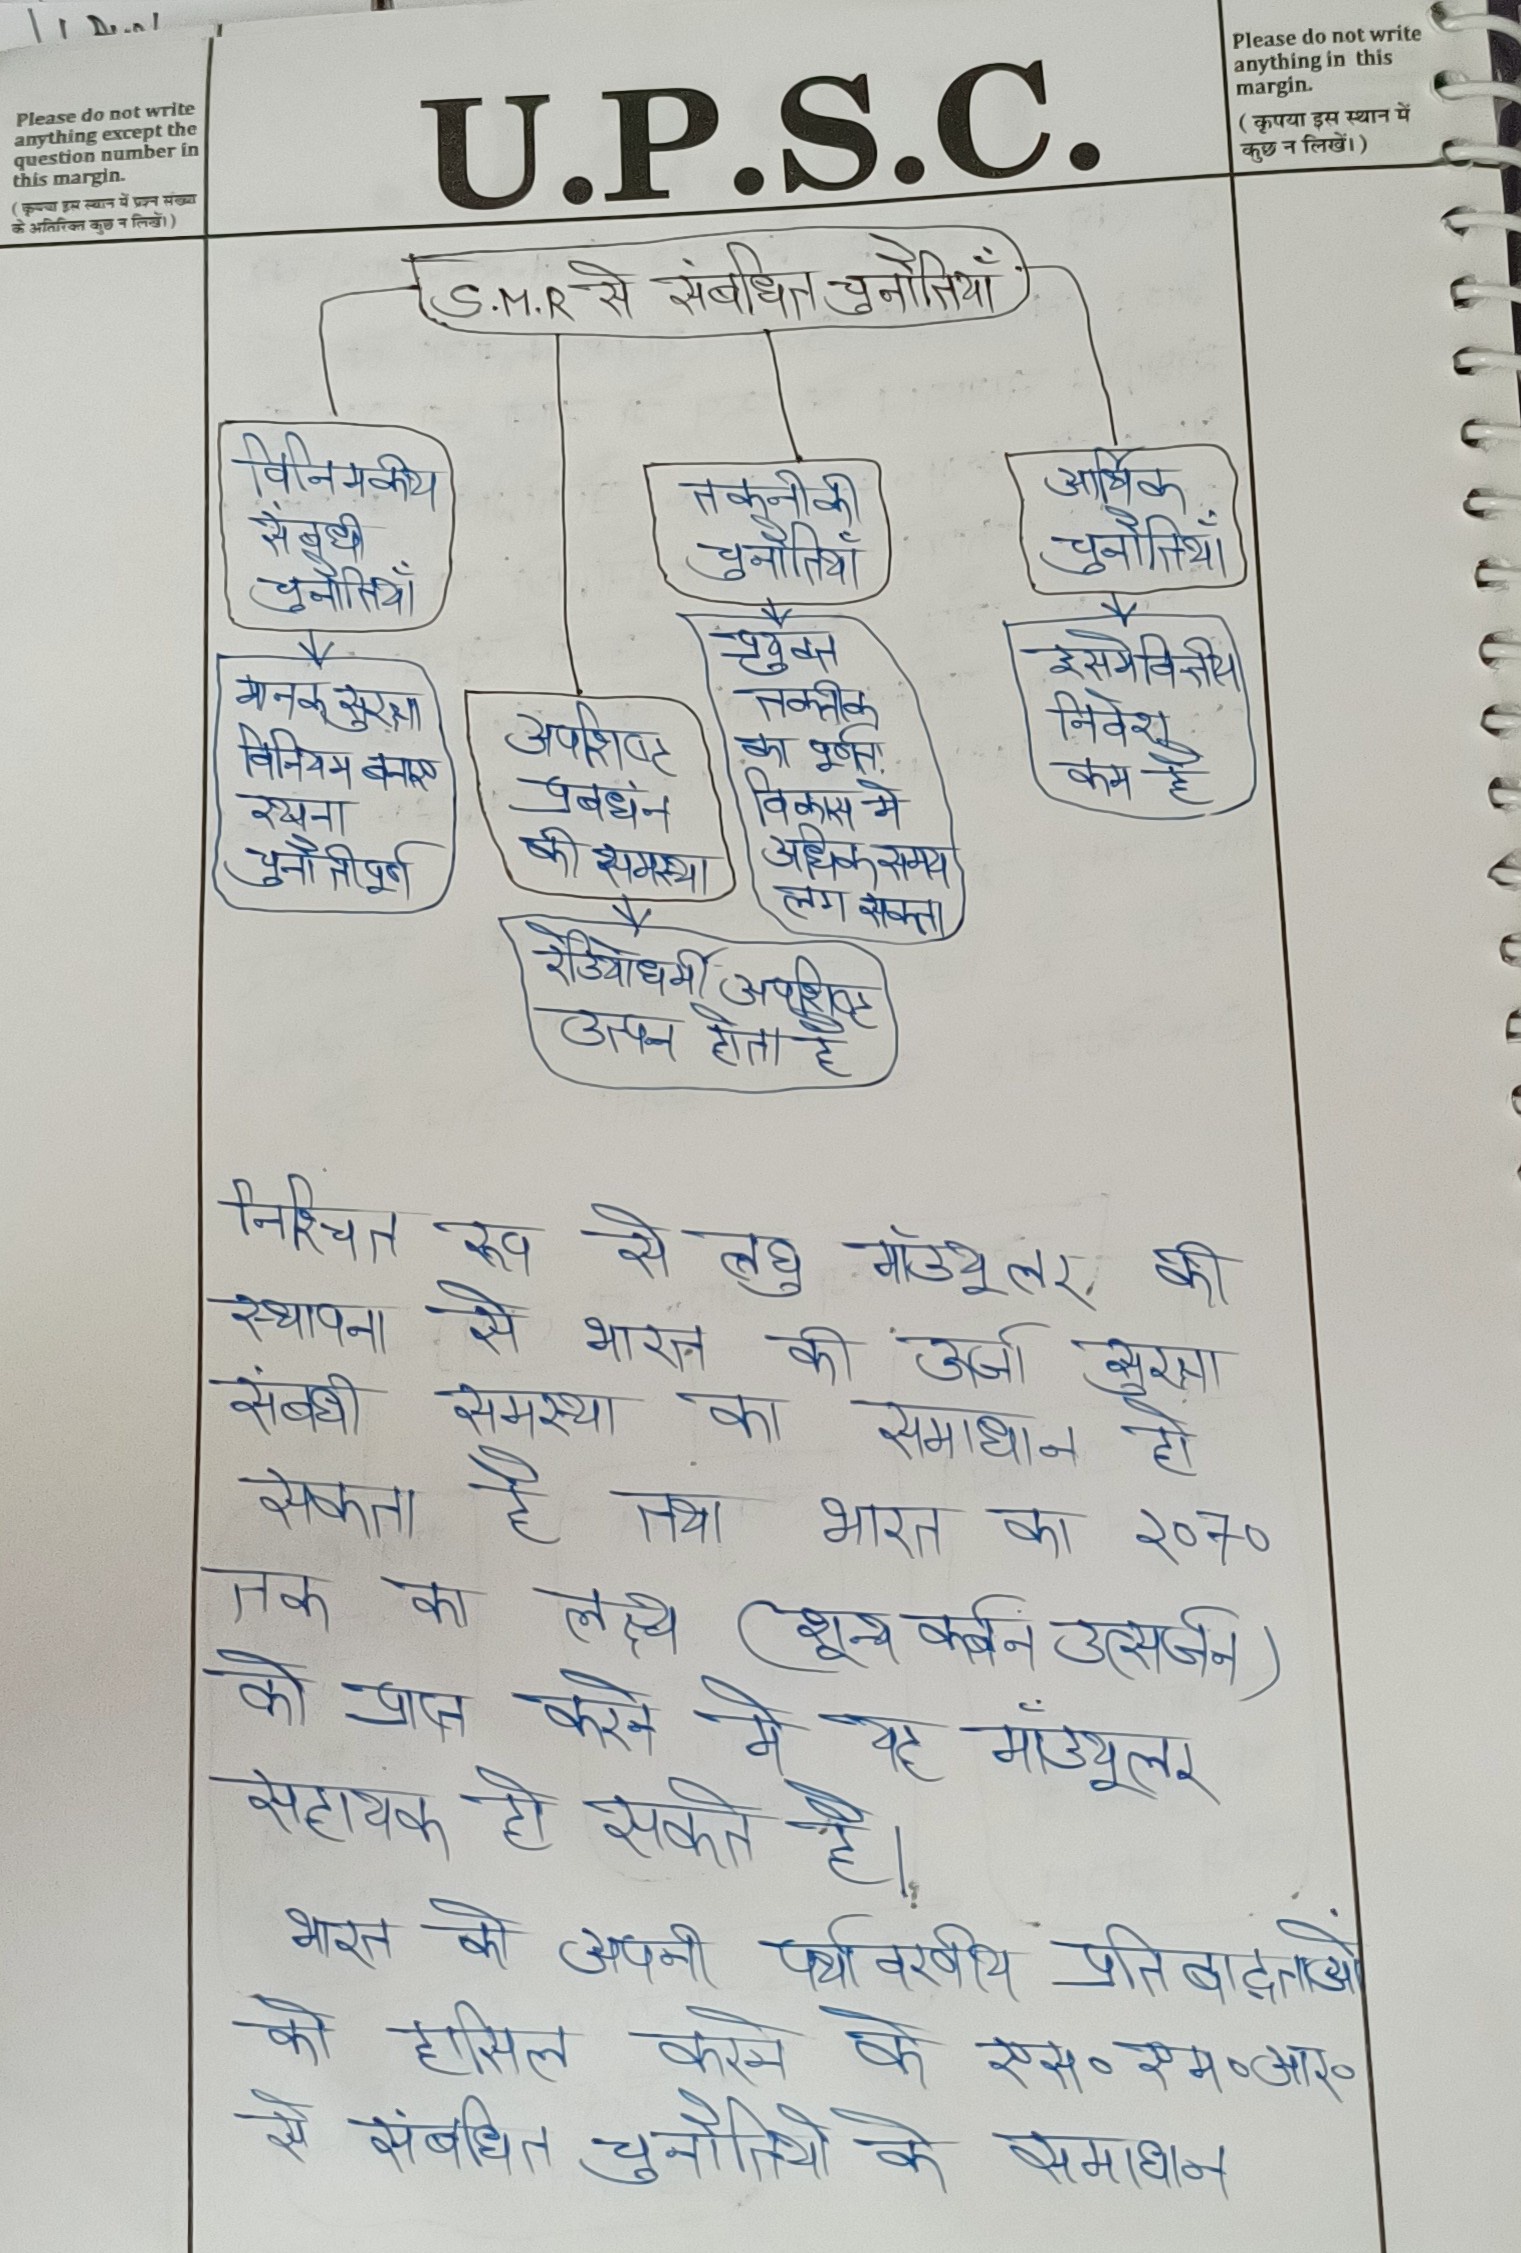 Please do not write
anything except the
question number in
this margin.
(कृपया इस स्थान में प्रश्न संख्या
के अतिरिक्त कुछ न लिखें।)
U.P.S.C.
Please do not write
anything in this
margin.
(कृपया इस स्थान में
कुछ न लिखें।)
S.M.R से संबधित चुनौतियाँ
विनिमकीय
संबधी
चुनौतियाँ
मानक सुरक्षा
विनियम बनाए
रखना
चुनौतीपूर्ण
अपशिष्ट
प्रबधंन
की समस्या
रेडियोधर्मी अपशिष्ट
उत्पन होता है
तकनीकी
चुनौतियाँ
प्रयुक्त
तकनीक
का पूर्णतः
विकास मे
अधिक समय
लग सकता
आर्थिक
चुनौतियाँ
इसमे वित्तीय
निवेश
कम है
निश्चित रूप से लघु मॉडयूलर की
स्थापना से भारत की उर्जा सुरक्षा
संबधी समस्या का समाधान हो
सकता है तथा भारत का २०७०
तक का लक्ष्य (शून्य कर्बन उत्सर्जन)
को प्राप्त करने मे यह मॉडयूलर
सहायक हो सकते है।
भारत को अपनी पर्यावरणीय प्रतिबाद्धताओं
को हासिल करने के एस॰ एम॰ आर॰
से संबधित चुनौतियो के समाधान